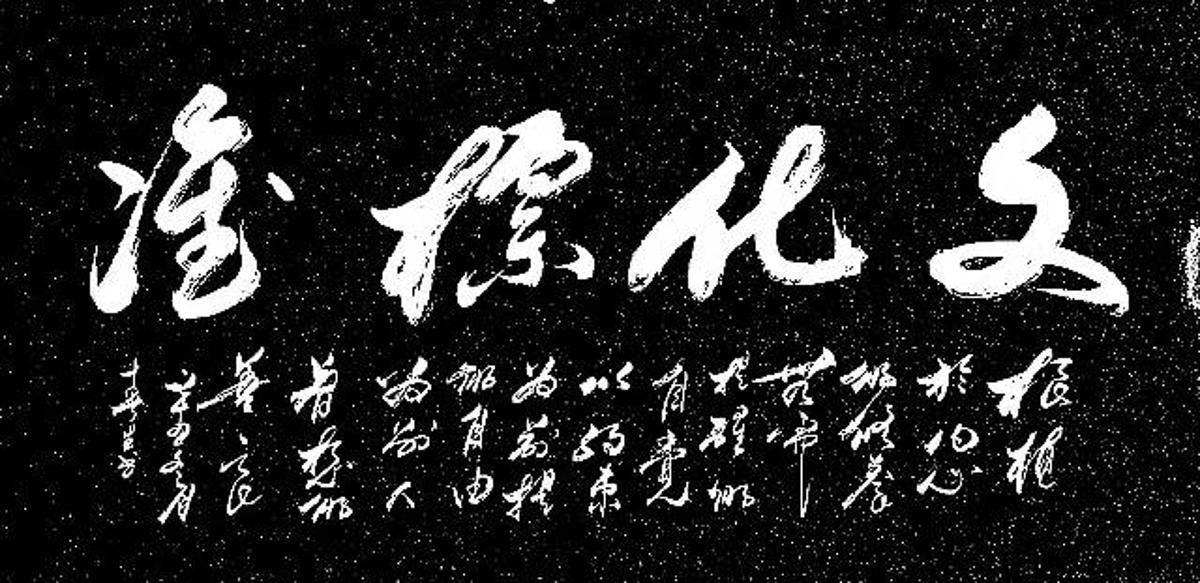 文化標准
根植
於内心
的修養
無需
提醒的
自覺
以約束
為前提
的自由
為別人
着想的
善良